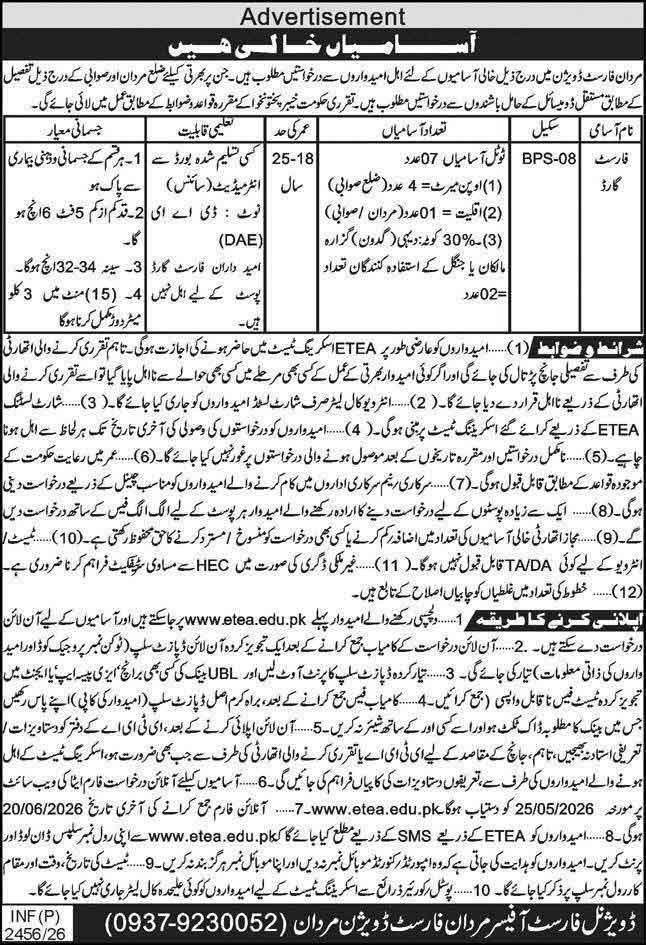 Advertisement
آسامیاں خالی ہیں
مردان فارسٹ ڈویژن میں درج ذیل خالی آسامیوں کے لئے اہل امیدواروں سے درخواستیں مطلوب ہیں۔ جن پر بھرتی کیلئے ضلع مردان اور صوابی کے درج ذیل تفصیل
کے مطابق مستقل ڈومیسائل کے حامل باشندوں سے درخواستیں مطلوب ہیں۔ تقرری حکومت خیبر پختونخوا کے مقررہ قواعد و ضوابط کے مطابق عمل میں لائی جائے گی۔
نام آسامی سکیل تعداد آسامیاں عمر کی حد تعلیمی قابلیت جسمانی معیار
فارسٹ گارڈ
BPS-08
ٹوٹل آسامیاں 07عدد
(1)اوپن میرٹ= 4 عدد(ضلع صوابی)
(2) اقلیت = 01عدد (مردان / صوابی)
(3)۔ 30% کوٹہ: دیہی (گدون) گزارہ
مالکان یا جنگل کے استفادہ کنندگان تعداد
=02عدد
25-18
سال
کسی تسلیم شدہ بورڈ سے
انٹرمیڈیٹ (سائنس)
نوٹ : ڈی اے ای
(DAE)
امید داران فارسٹ گارڈ
پوسٹ کے لیے اہل نہیں
ہیں۔
1۔ ہر قسم کے جسمانی و ذہنی بیماری
سے پاک ہو
2۔ قد کم از کم 5 فٹ 6 انچ ہو
گا۔
3۔ سینہ 34-32 انچ ہو گا۔
4۔ (15) منٹ میں 3 کلو
میٹر دوڑ مکمل کرنا ہوگا
شرائط و ضوابط (1)......امیدواروں کو عارضی طور پر ETEA اسکریننگ ٹیسٹ میں حاضر ہونے کی اجازت ہوگی۔ تاہم تقرری کرنے والی اتھارٹی
کی طرف سے تفصیلی جانچ پڑتال کی جائے گی اور اگر کوئی امیدوار بھرتی کے عمل کے کسی بھی مرحلے میں کسی بھی حوالے سے نااہل پایا گیا تو اسے تقرری کرنے والی
اتھارٹی کے ذریعے نااہل قرار دے دیا جائے گا۔ (2)......انٹرویو کال لیٹر صرف شارٹ لسٹڈ امیدواروں کو جاری کیا جائے گا۔ (3)......شارٹ لسٹنگ
ETEA کے ذریعے کرائے گئے اسکریننگ ٹیسٹ پر مبنی ہوگی۔ (4)......امیدواروں کو درخواستوں کی وصولی کی آخری تاریخ تک ہر لحاظ سے اہل ہونا
چاہیے۔ (5)......نامکمل درخواستیں اور مقررہ تاریخوں کے بعد موصول ہونے والی درخواستوں پر غور نہیں کیا جائے گا۔ (6)......عمر میں رعایت حکومت کے
موجودہ قواعد کے مطابق قابل قبول ہوگی۔ (7)......سرکاری / نیم سرکاری اداروں میں کام کرنے والے امیدواروں کو مناسب چینل کے ذریعے درخواست دینی
ہوگی۔ (8)...... ایک سے زیادہ پوسٹوں کے لیے درخواست دینے کا ارادہ رکھنے والے امیدوار ہر پوسٹ کے لیے الگ الگ فیس کے ساتھ درخواست دیں
گے۔ (9)......مجاز اتھارٹی خالی آسامیوں کی تعداد میں اضافہ / کم کرنے یا کسی بھی درخواست کو منسوخ / مسترد کرنے کا حق محفوظ رکھتی ہے۔ (10)......ٹیسٹ /
انٹرویو کے لیے کوئی TA/DA قابل قبول نہیں ہوگا۔ (11)......غیر ملکی ڈگری کی صورت میں HEC سے مساوی سٹیفکیٹ فراہم کرنا ضروری ہے۔
(12)...... خطوط کی تعداد میں غلطیاں کو چاہیاں اصلاح کے تابع ہیں۔
اپلائی کرنے کا طریقہ 1۔ دلچسپی رکھنے والے امیدوار پہلے www.etea.edu.pk پر جاسکتے ہیں اور آسامیوں کے لیے آن لائن
درخواست دے سکتے ہیں۔ 2۔ آن لائن درخواست کے کامیاب جمع کرانے کے بعد ایک تجویز کردہ آن لائن ڈپازٹ سلپ (ٹوکن نمبر پروجیکٹ کوڈ اور امید
واروں کی ذاتی معلومات) تیار کی جائے گی۔ 3۔ تیار کردہ ڈپازٹ سلپ کا پرنٹ آوٹ لیں اور UBL بینک کی کسی بھی برانچ / ایزی پیسہ ایپ یا ایجنٹ میں
تجویز کردہ ٹیسٹ فیس ناقابل واپسی (جمع کرائیں۔ 4۔ کامیاب فیس جمع کرانے کے بعد، براہ کرم اصل ڈپازٹ سلپ (امیدوار کی کاپی) اپنے پاس رکھیں
جس میں بینک کا مطلوبہ ڈاک ٹکٹ ہو اور اسے کسی اور کے ساتھ شیئر نہ کریں۔ 5۔ آن لائن اپلائی کرنے کے بعد، ای ٹی ای اے کے دفتر کو دستاویزات /
تعریفی اسناد نہ بھیجیں، تاہم، جانچ کے مقاصد کے لیے ای ٹی ای اے یا تقرری کرنے والی اتھارٹی کی طرف سے جب بھی ضرورت ہو، اسکریننگ ٹیسٹ کے اہل
ہونے والے امیدواروں کی طرف سے، تعریفوں دستاویزات کی کاپیاں فراہم کی جائیں گی۔ 6۔ آسامیوں کیلئے آنلائن درخواست فارم ایٹا کی ویب سائٹ
پر مورخہ 25/05/2026 کو دستیاب ہوگا۔ www.etea.edu.pk۔ 7۔ آنلائن فارم جمع کرانے کی آخری تاریخ 20/06/2026
ہوگی۔ 8۔ امیدواروں کو ETEA کے ذریعے SMS کے ذریعے مطلع کیا جائے گا کہ www.etea.edu.pk سے اپنی رول نمبر سلپس ڈان لوڈ اور
پرنٹ کریں۔ امیدواروں کو ہدایت کی جاتی ہے کہ وہ امپورٹڈ / کنورٹڈ موبائل نمبر نہ دیں اور اپنا موبائل نمبر ہرگز بند نہ کریں۔ 9۔ ٹیسٹ کی تاریخ، وقت اور مقام
کا رول نمبر سلپ پر ذکر کیا جائے گا۔ 10۔ پوسٹل / کوریئر ذرائع سے اسکریننگ ٹیسٹ کے لیے امیدواروں کو کوئی علیحدہ کال لیٹر جاری نہیں کیا جائے گا۔
ڈویژنل فارسٹ آفیسر مردان فارسٹ ڈویژن مردان (0937-9230052)
INF(P)
2456/26